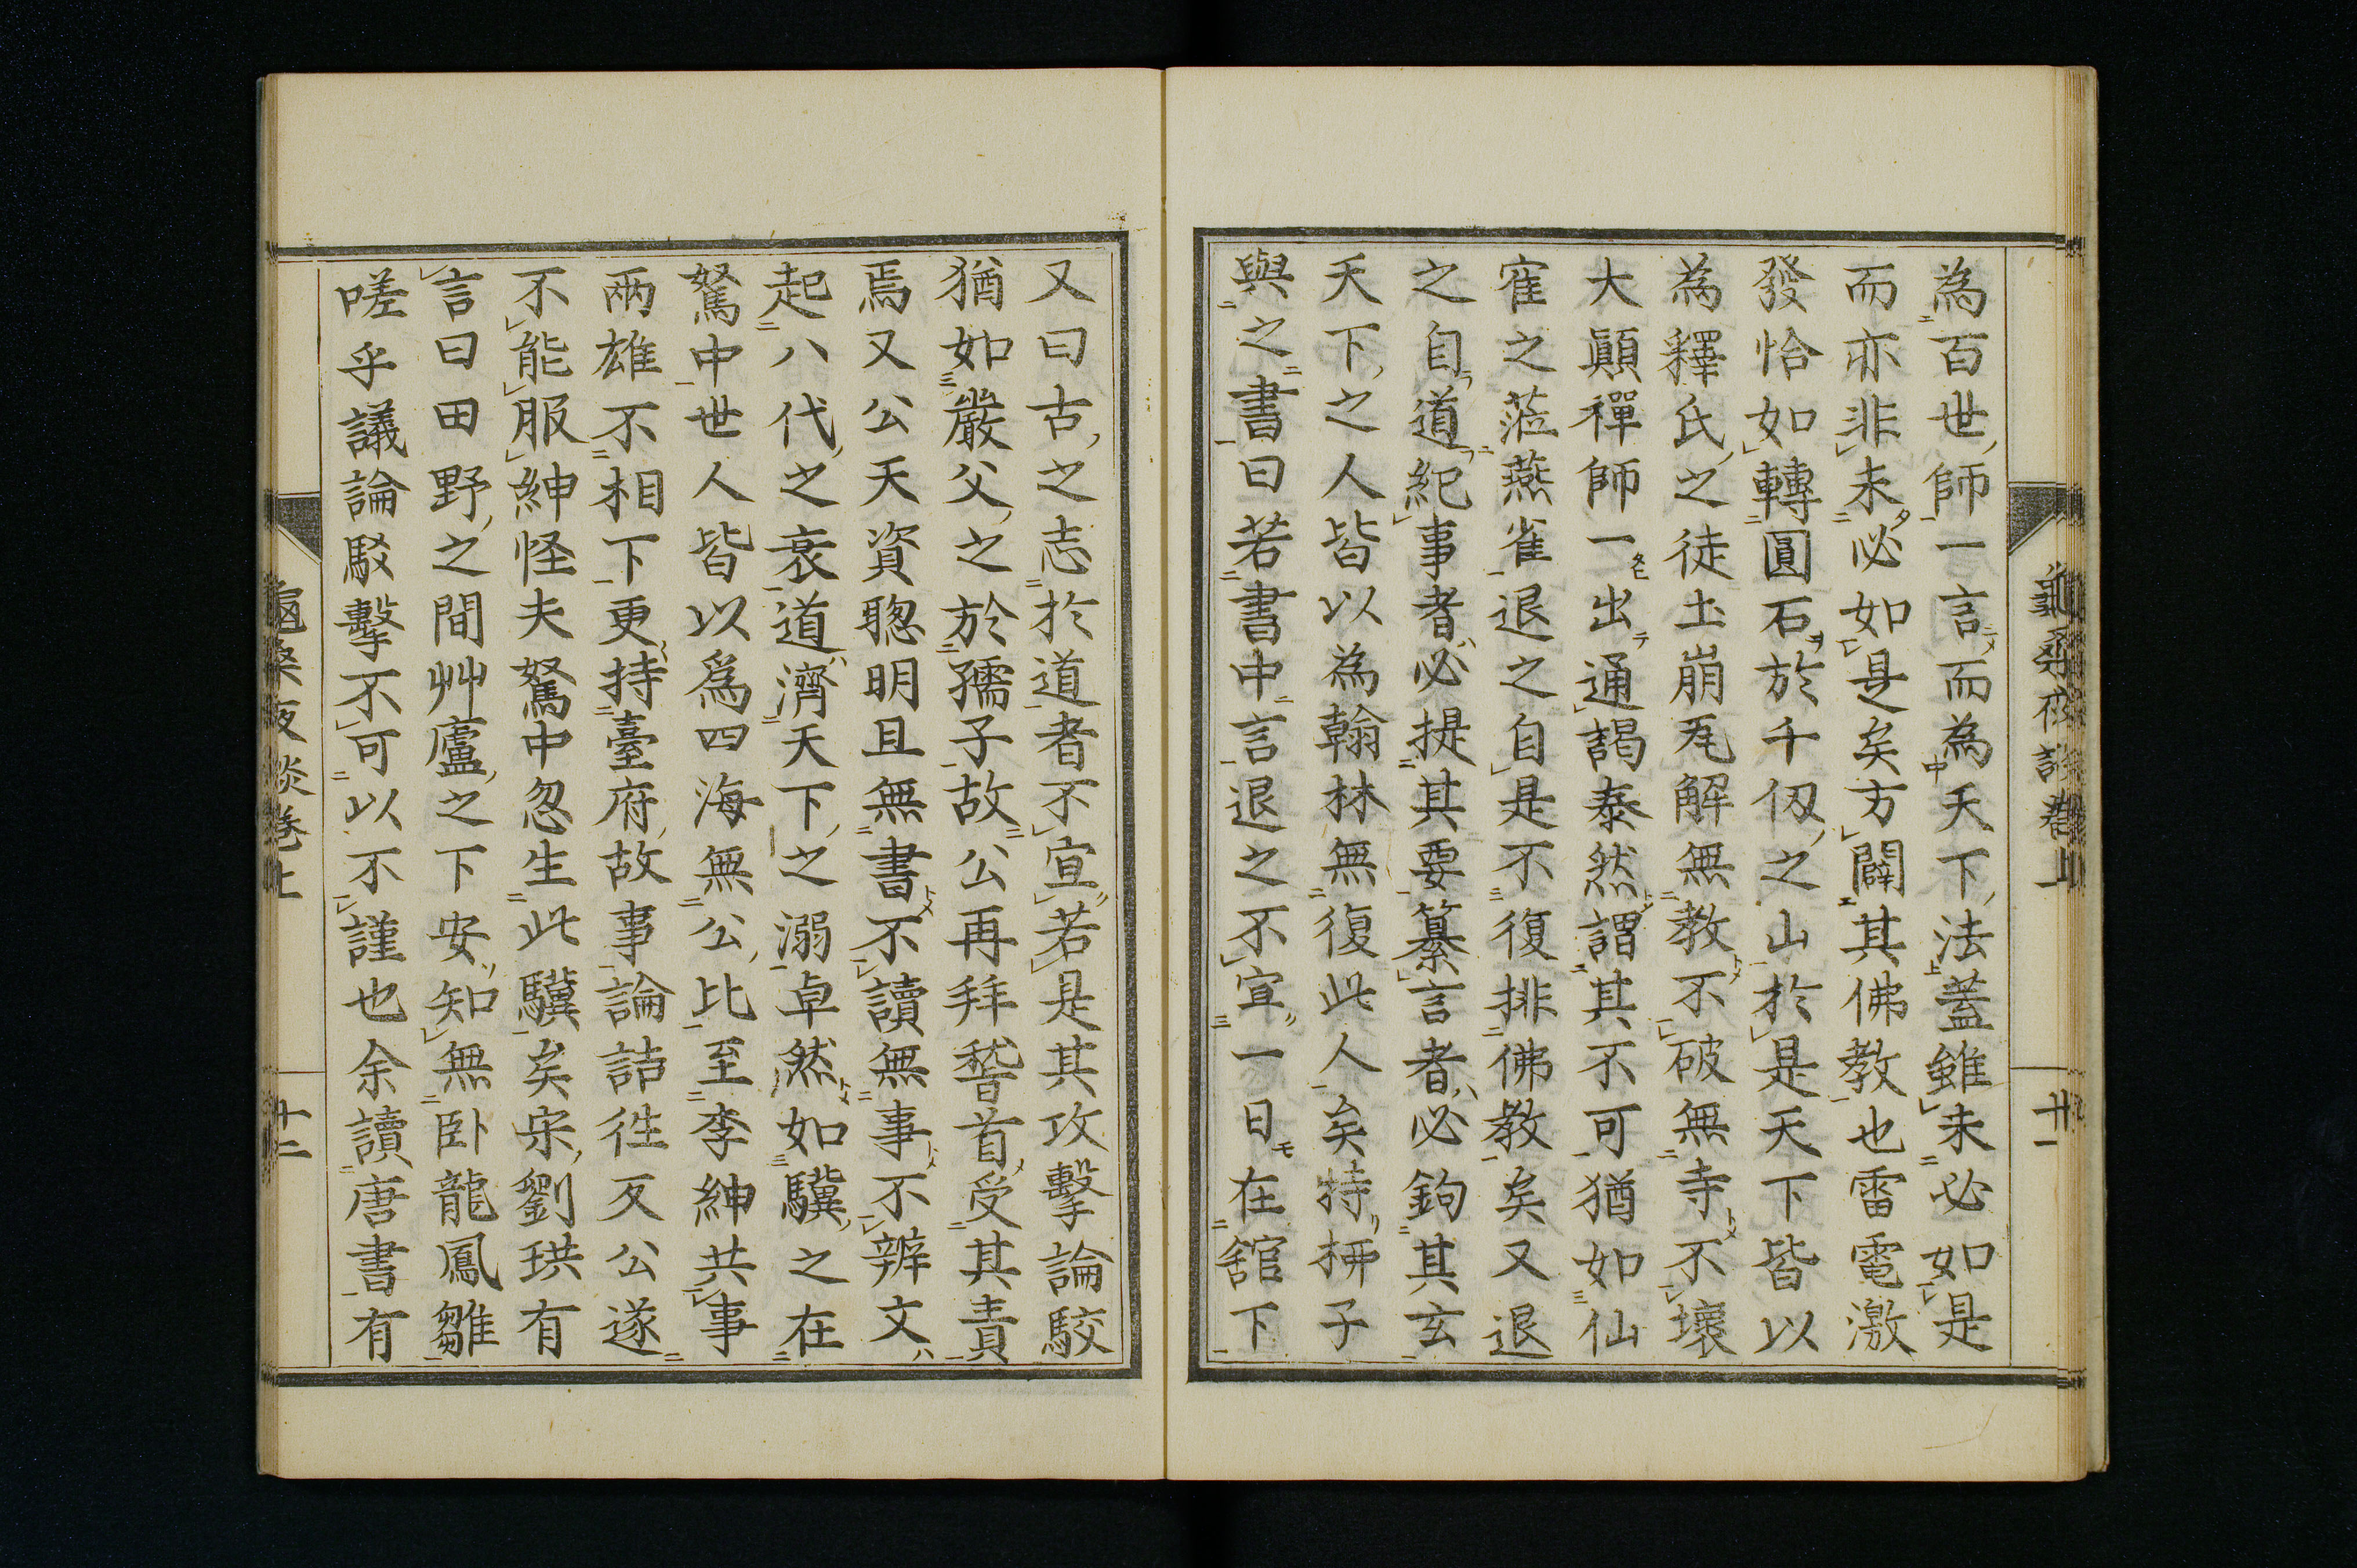 為百世師一言而為天下法蓋雖未必如是
而亦非未必如是矣方闢其佛教也雷電激
發恰如轉圓石於千仭之山於是天下皆以
為釋氏之徒土崩瓦解無教不破無寺不壞
大顚禪師一出通謁泰然謂其不可猶如仙
隺之蒞燕雀退之自是不復排佛教矣又退
之自道紀事者必提其要纂言者必鉤其玄
天下之人皆以為翰林無復此人矣特柳子
與之書曰若書中言退之不宜一日在舘下
又曰古之志於道者不宜若是其攻擊論駮
猶如嚴父之於孺子故公再拜嵆首受其責
焉又公天資聰明且無書不讀無事不辨文
起八代之衰道濟天下之溺卓然如驥之在
駑中世人皆以爲四海無公比至李紳共事
兩雄不相下更持臺府故事論詰徃反公遂
不能服紳怪夫駑中忽生此驥矣宋劉珙有
言曰田野之間艸廬之下安知無臥龍鳳雛
嗟乎議論駁擊不可以不謹也余讀唐書有
龜桑夜談巻上
十一
龜桑夜談巻上
十二